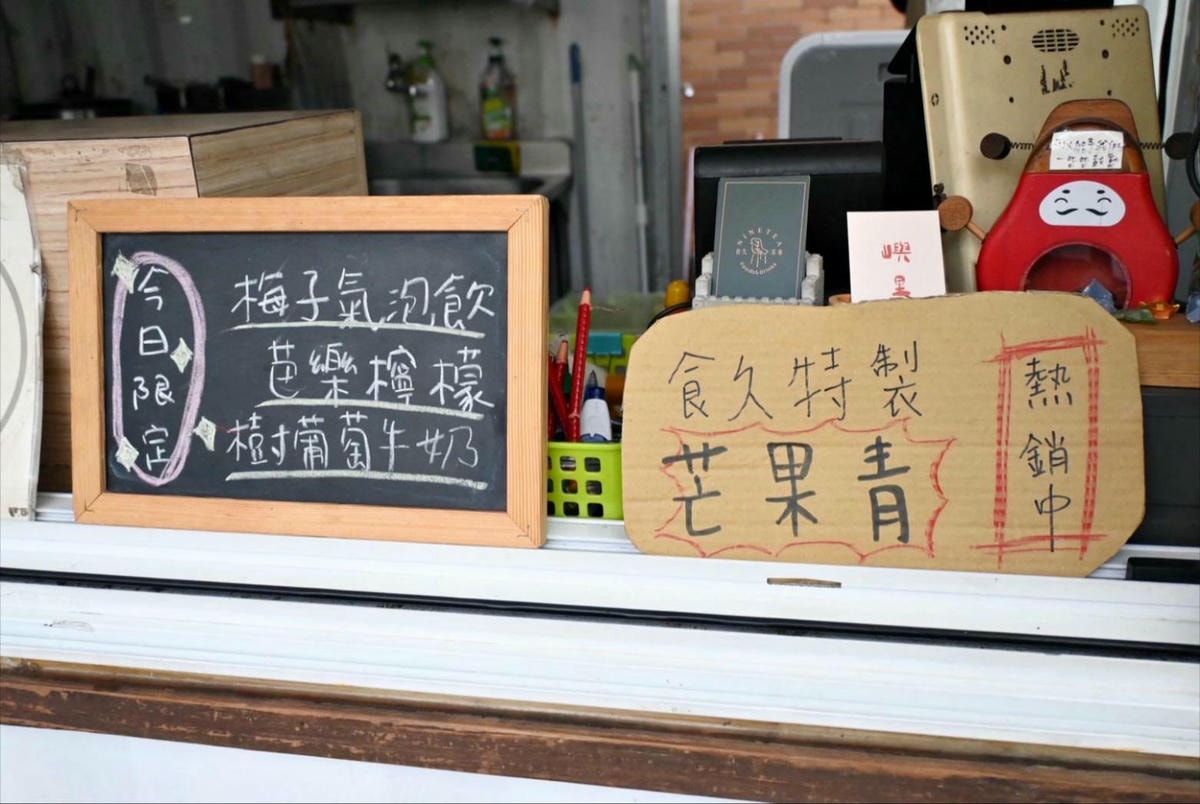 今日限定
梅子氣泡飲
芭樂檸檬
樹葡萄牛奶
NINETEA
嶼
食久特製
芒果青
熱銷中